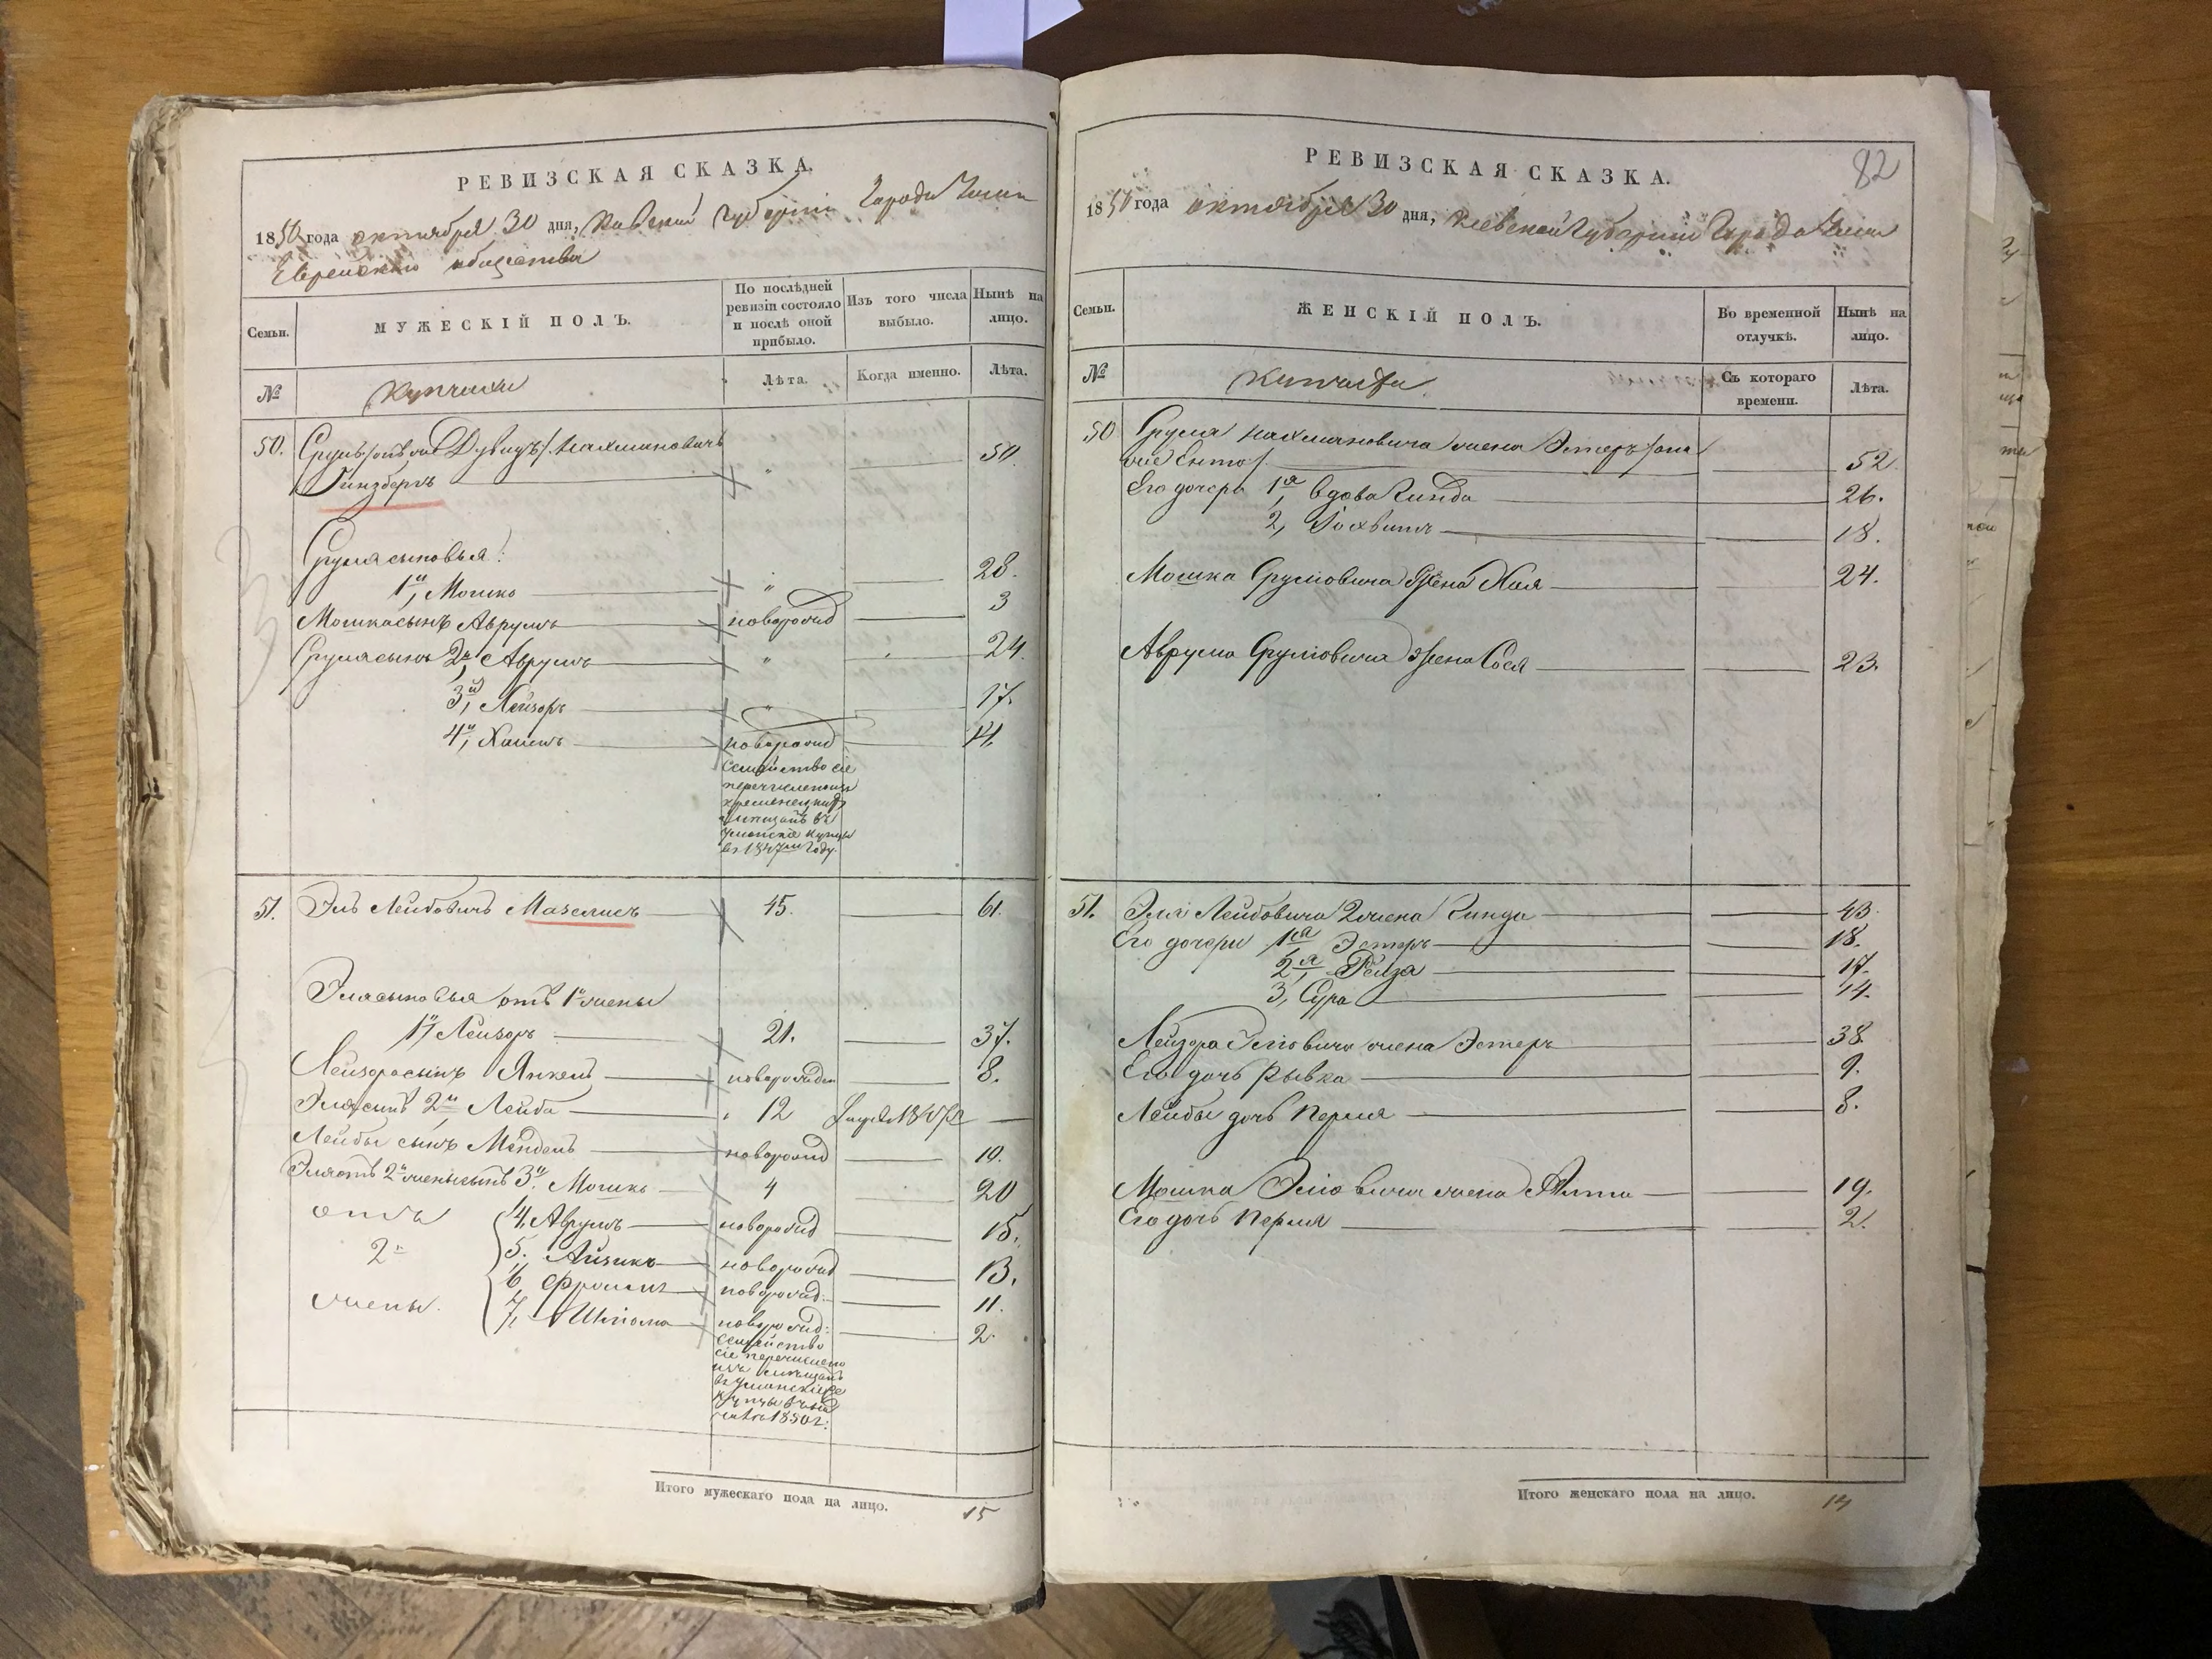 РЕВИЗСКАЯ СКАЗКА.
1850 года октября 30 дня, Киевской Губерніи Города Умани
Еврейскаго общества
Семьи.
МУЖЕСКІЙ ПОЛЪ.
По послѣдней ревизіи состояло и послѣ оной прибыло.
Изъ того числа выбыло.
Нынѣ на лицо.
№
Лѣта.
Когда именно.
Лѣта.
50. Сруль Нахмановичъ
Гинзбергъ " 50.
Сруля сыновья:
1й, Мошко " 28.
Мошка сынъ Аврумъ новорожд 3
Сруля сынъ 2й, Аврумъ " 24.
3й, Лейзоръ " 17.
4й, Хаимъ новорожд 14.
Семейство сіе
перечислено изъ
кременецкихъ
мѣщанъ въ
уманскіе купцы
въ 1847м году.
51. Эль Лейбовичъ Мазелисъ 45. 61.
Эля сыновья отъ 1й жены
1й Лейзоръ 21. 37.
Лейзора сынъ Янкель новорожден 8.
Эля сынъ 2й Лейба 12
Лейбы сынъ Мендель новорожд 10.
Эля отъ 2й жены сынъ 3й. Мошко 4 20
отъ 2й жены. 4, Аврумъ новорожд 15.
5. Айзикъ новорожд 13.
6, Фроимъ новорожд: 11.
7, Шліома новорожд: 2.
Семейство
сіе перечислено
изъ мѣщанъ
въ уманскіе
купцы
1850г:
Итого мужескаго пола на лицо. 15
82
РЕВИЗСКАЯ СКАЗКА.
1850 года октября 30 дня, Киевской Губерніи Города Умани
Семьи.
ЖЕНСКІЙ ПОЛЪ.
Во временной отлучкѣ.
Нынѣ на лицо.
№
Съ котораго времени.
Лѣта.
50 Сруля Нахмановича жена Эстеръ /она
же Ента/. 52.
Его дочери 1я, вдова 26.
2, 18.
Мошка Сруліовича жена Хая 24.
Аврума Сруліовича жена Сося 23.
51. Эля Лейбовича 2 жена 43.
Его дочери 1я Эстеръ 18.
2я, Рейзя 17.
3, Сура 14.
Лейзора Эліовича жена Эстеръ 38.
Его дочь Рывка 9.
Лейбы дочь Перля 8.
Мошка Эліовича жена 19.
Его дочь Перля 2.
Итого женскаго пола на лицо. 14